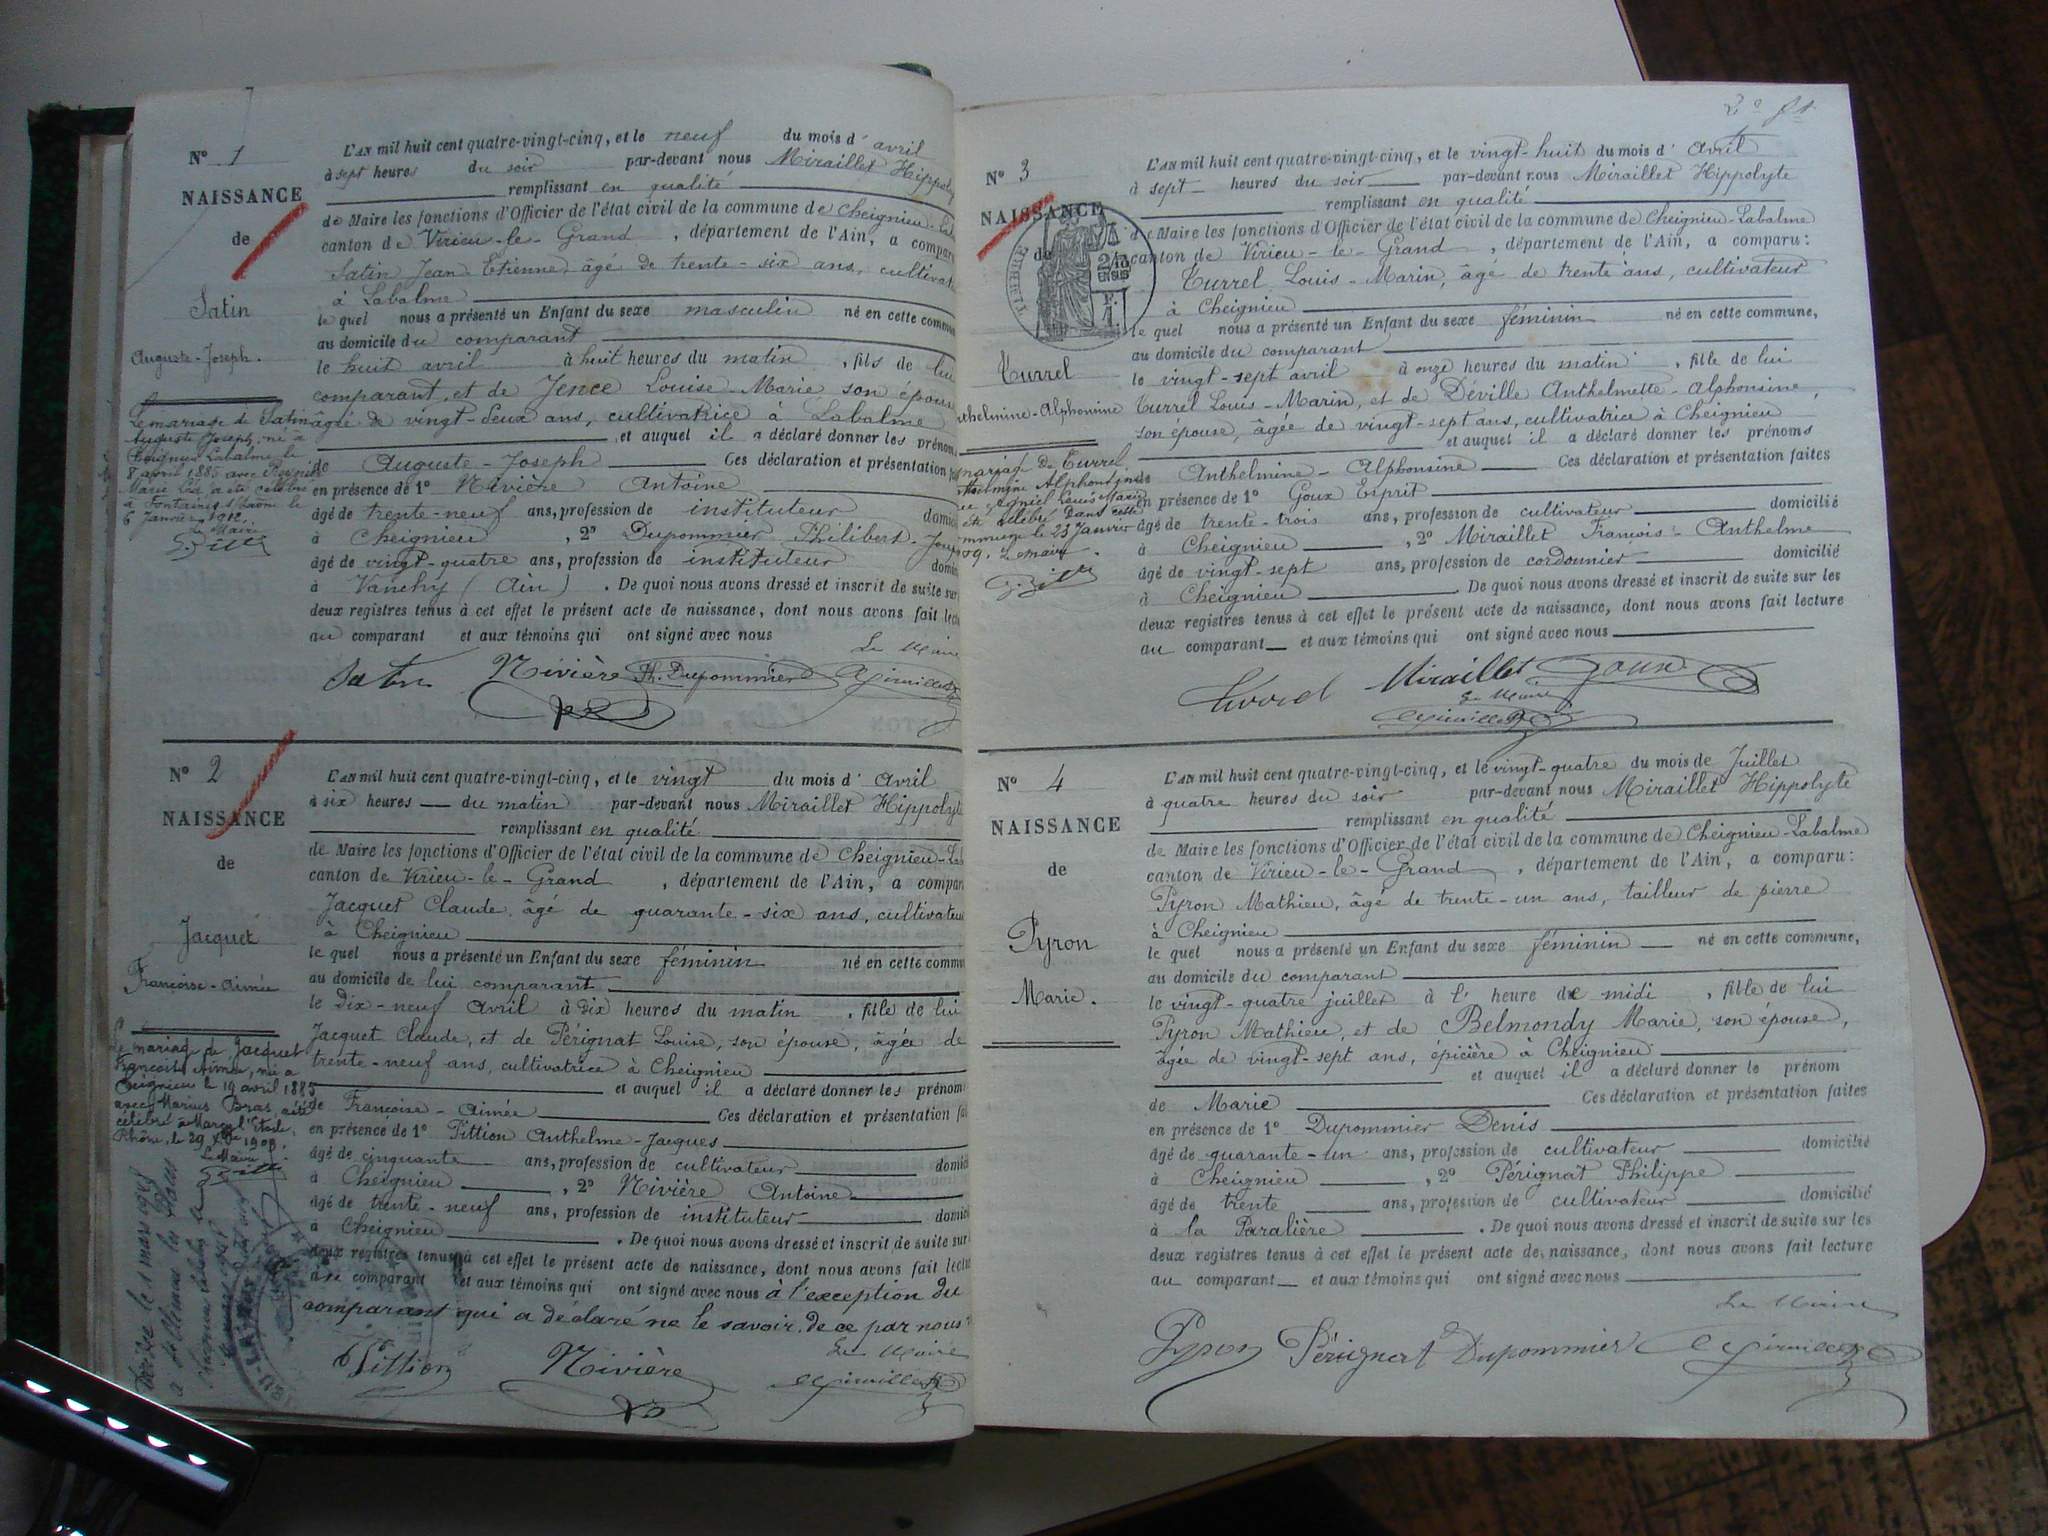 N° 1
NAISSANCE
de
Satin
Auguste-Joseph.
Le mariage de Satin
Auguste Joseph, né à
Cheignieu Labalme le
8 avril 1885 avec
Marie a été célébré
à Fontaines s/ Saône le
6 Janvier 1912.
Le Maire
L'AN mil huit cent quatre-vingt-cinq, et le neuf du mois d' avril
à sept heures du soir par-devant nous Miraillet Hippoly
remplissant en qualité
de Maire les fonctions d'Officier de l'état civil de la commune de Cheignieu-La
canton de Virieu-le-Grand, département de l'Ain, a compar
Satin Jean Etienne, âgé de trente-six ans, cultivat
à Labalme
le quel nous a présenté un Enfant du sexe masculin né en cette commun
au domicile du comparant
le huit avril à huit heures du matin, fils de lui
comparant, et de Jence Louise Marie son épous
âgée de vingt-deux ans, cultivatrice à Labalme
et auquel il a déclaré donner les prénoms
de Auguste-Joseph Ces déclaration et présentation fai
en présence de 1° Nivière Antoine
âgé de trente-neuf ans, profession de instituteur domici
à Cheignieu, 2° Dupommier Philibert-Jose
âgé de vingt-quatre ans, profession de instituteur domici
à Vanchy (Ain). De quoi nous avons dressé et inscrit de suite sur
deux registres tenus à cet effet le présent acte de naissance, dont nous avons fait lect
au comparant et aux témoins qui ont signé avec nous
Le Maire
Satin Nivière Ph. Dupommier Miraillet
N° 2
NAISSANCE
de
Jacquet
Françoise-Aimée
Le mariage de Jacquet
Françoise Aimée, née à
Cheignieu le 19 avril 1885
avec Marius Bras, a été
célébré à Marcy l'Etoile,
Rhône, le 29 Xbre 1908.
Le Maire
L'AN mil huit cent quatre-vingt-cinq, et le vingt du mois d' avril
à six heures du matin par-devant nous Miraillet Hippolyte
remplissant en qualité
de Maire les fonctions d'Officier de l'état civil de la commune de Cheignieu-La
canton de Virieu-le-Grand, département de l'Ain, a compar
Jacquet Claude, âgé de quarante-six ans, cultivateu
à Cheignieu
le quel nous a présenté un Enfant du sexe féminin né en cette commu
au domicile de lui comparant
le dix-neuf avril à dix heures du matin, fille de lui
Jacquet Claude, et de Pérignat Louise, son épouse, âgée de
trente-neuf ans, cultivatrice à Cheignieu
et auquel il a déclaré donner les prénom
de Françoise-Aimée Ces déclaration et présentation fai
en présence de 1° Pittion Anthelme-Jacques
âgé de cinquante ans, profession de cultivateur domici
à Cheignieu, 2° Nivière Antoine
âgé de trente-neuf ans, profession de instituteur domici
à Cheignieu. De quoi nous avons dressé et inscrit de suite sur
deux registres tenus à cet effet le présent acte de naissance, dont nous avons fait lectu
au comparant et aux témoins qui ont signé avec nous à l'exception du
comparant qui a déclaré ne le savoir, de ce par nous
Le Maire
Pittion Nivière Miraillet
2e ft
N° 3
NAISSANCE
de
TIMBRE
2/10
EN SUS
F.
1
Turrel
Anthelmine-Alphonsine
mariage de Turrel
Anthelmine Alphonsine
Louis Marie
été célébré dans cette
commune le 23 Janvier
09. Le maire.
L'AN mil huit cent quatre-vingt-cinq, et le vingt-huit du mois d' avril
à sept heures du soir par-devant nous Miraillet Hippolyte
remplissant en qualité
de Maire les fonctions d'Officier de l'état civil de la commune de Cheignieu-Labalme
canton de Virieu-le-Grand, département de l'Ain, a comparu:
Turrel Louis-Marin, âgé de trente ans, cultivateur
à Cheignieu
le quel nous a présenté un Enfant du sexe féminin né en cette commune,
au domicile du comparant
le vingt-sept avril à onze heures du matin, fille de lui
Turrel Louis-Marin, et de Déville Anthelmette-Alphonsine,
son épouse, âgée de vingt-sept ans, cultivatrice à Cheignieu
et auquel il a déclaré donner les prénoms
de Anthelmine-Alphonsine Ces déclaration et présentation faites
en présence de 1° Goux Esprit
âgé de trente-trois ans, profession de cultivateur domicilié
à Cheignieu, 2° Miraillet François-Anthelme
âgé de vingt-sept ans, profession de cordonnier domicilié
à Cheignieu De quoi nous avons dressé et inscrit de suite sur les
deux registres tenus à cet effet le présent acte de naissance, dont nous avons fait lecture
au comparant et aux témoins qui ont signé avec nous
Turrel Miraillet Goux
Le Maire
Miraillet
N° 4
NAISSANCE
de
Pyron
Marie.
L'AN mil huit cent quatre-vingt-cinq, et le vingt-quatre du mois de Juillet
à quatre heures du soir par-devant nous Miraillet Hippolyte
remplissant en qualité
de Maire les fonctions d'Officier de l'état civil de la commune de Cheignieu-Labalme
canton de Virieu-le-Grand, département de l'Ain, a comparu:
Pyron Mathieu, âgé de trente-un ans, tailleur de pierre
à Cheignieu
le quel nous a présenté un Enfant du sexe féminin né en cette commune,
au domicile du comparant
le vingt-quatre juillet à l' heure de midi, fille de lui
Pyron Mathieu, et de Belmondy Marie, son épouse,
âgée de vingt-sept ans, épicière à Cheignieu
et auquel il a déclaré donner le prénom
de Marie Ces déclaration et présentation faites
en présence de 1° Dupommier Denis
âgé de quarante-un ans, profession de cultivateur domicilié
à Cheignieu, 2° Pérignat Philippe
âgé de trente ans, profession de cultivateur domicilié
à la Paralière. De quoi nous avons dressé et inscrit de suite sur les
deux registres tenus à cet effet le présent acte de naissance, dont nous avons fait lecture
au comparant et aux témoins qui ont signé avec nous
Le Maire
Pyron Pérignat Dupommier Miraillet